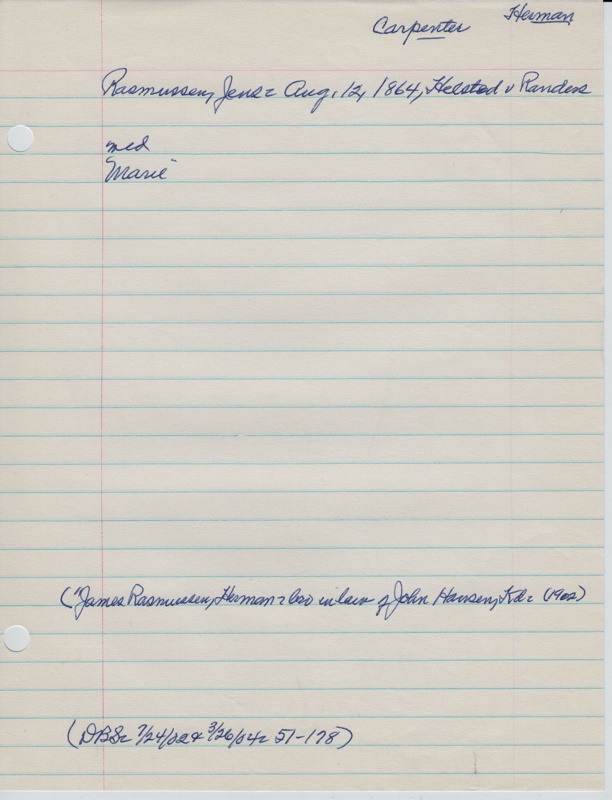 Herman
Carpenter
Rasmussen, Jens = Aug. 12, 1864, Helsted v Randers
med
Marie"
("James Rasmussen, Herman = bro in law of John Hansen, Kd = (1902)
(DBS = 7/24/02 & 3/26/04 = 51-178)